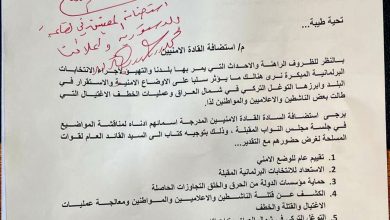 تحية طيبة...
م/ استضافة القادة الامنيين
بالنظر للظروف الراهنة والاحداث التي يمر بها بلدنا والتهيئ لاجراء الانتخابات
البرلمانية المبكرة نرى هنالك ما يؤثر سلبا على الاوضاع الامنية والاستقرار في
البلد وابرزها التوغل التركي في شمال العراق وعمليات الخطف الاغتيال التي
طالت بعض الناشطين والاعلاميين والمواطنين لذا
يرجى استضافة السادة القادة الامنيين المدرجة اسمائهم ادناه لمناقشة المواضيع
في جلسة مجلس النواب المقبلة، وذلك بتوجيه كتاب الى السيد القائد العام لقوات
المسلحة لغرض حضورهم مع التقدير...
1- تقييم عام للوضع الامني
2- الاستعداد للانتخابات البرلمانية المقبلة
3- حماية مؤسسات الدولة من الحرق والغلق التجاوزات الحاصلة
4- الكشف عن قتلة الناشطين والاعلاميين والمواطنين ومعالجة عمليات
الاغتيال والقتلة والخطف
5- التوغل التركي في شمال